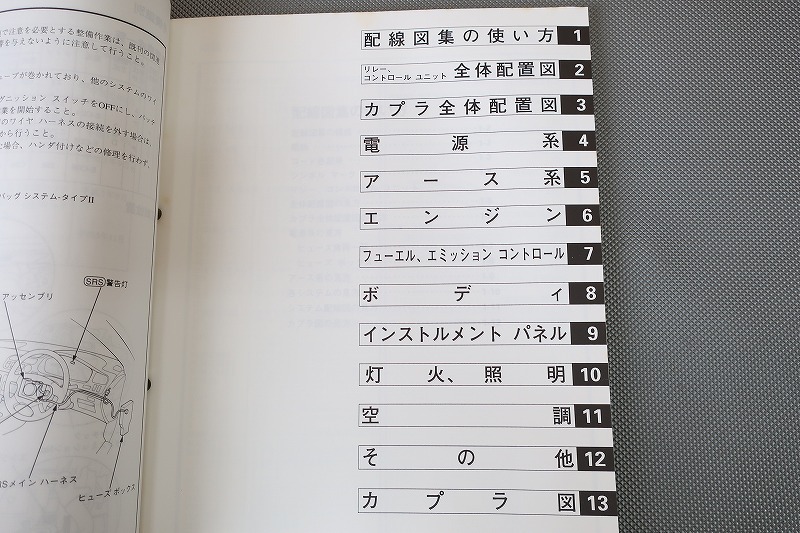 で注意を必要とする整備作業は、既刊の関連
を与えないように注意して行うこと。
ューブが巻かれており、他のシステムのワイ
グニッション スイッチをOFFにし、バッテ
業を開始すること。
のワイヤ ハーネスの接続を外す場合は、
から行うこと。
な場合、ハンダ付けなどの修理を行わず、
バッグ システム-タイプII
SRS警告灯
アッセンブリ
RSメイン ハーネス
ヒューズ ボックス
配線図集の使い方 1
リレー、
コントロール ユニット 全体配置図 2
カプラ全体配置図 3
電源系 4
アース系 5
エンジン 6
フューエル、エミッション コントロール 7
ボディ 8
インストルメント パネル 9
灯火、照明 10
空調 11
その他 12
カプラ図 13